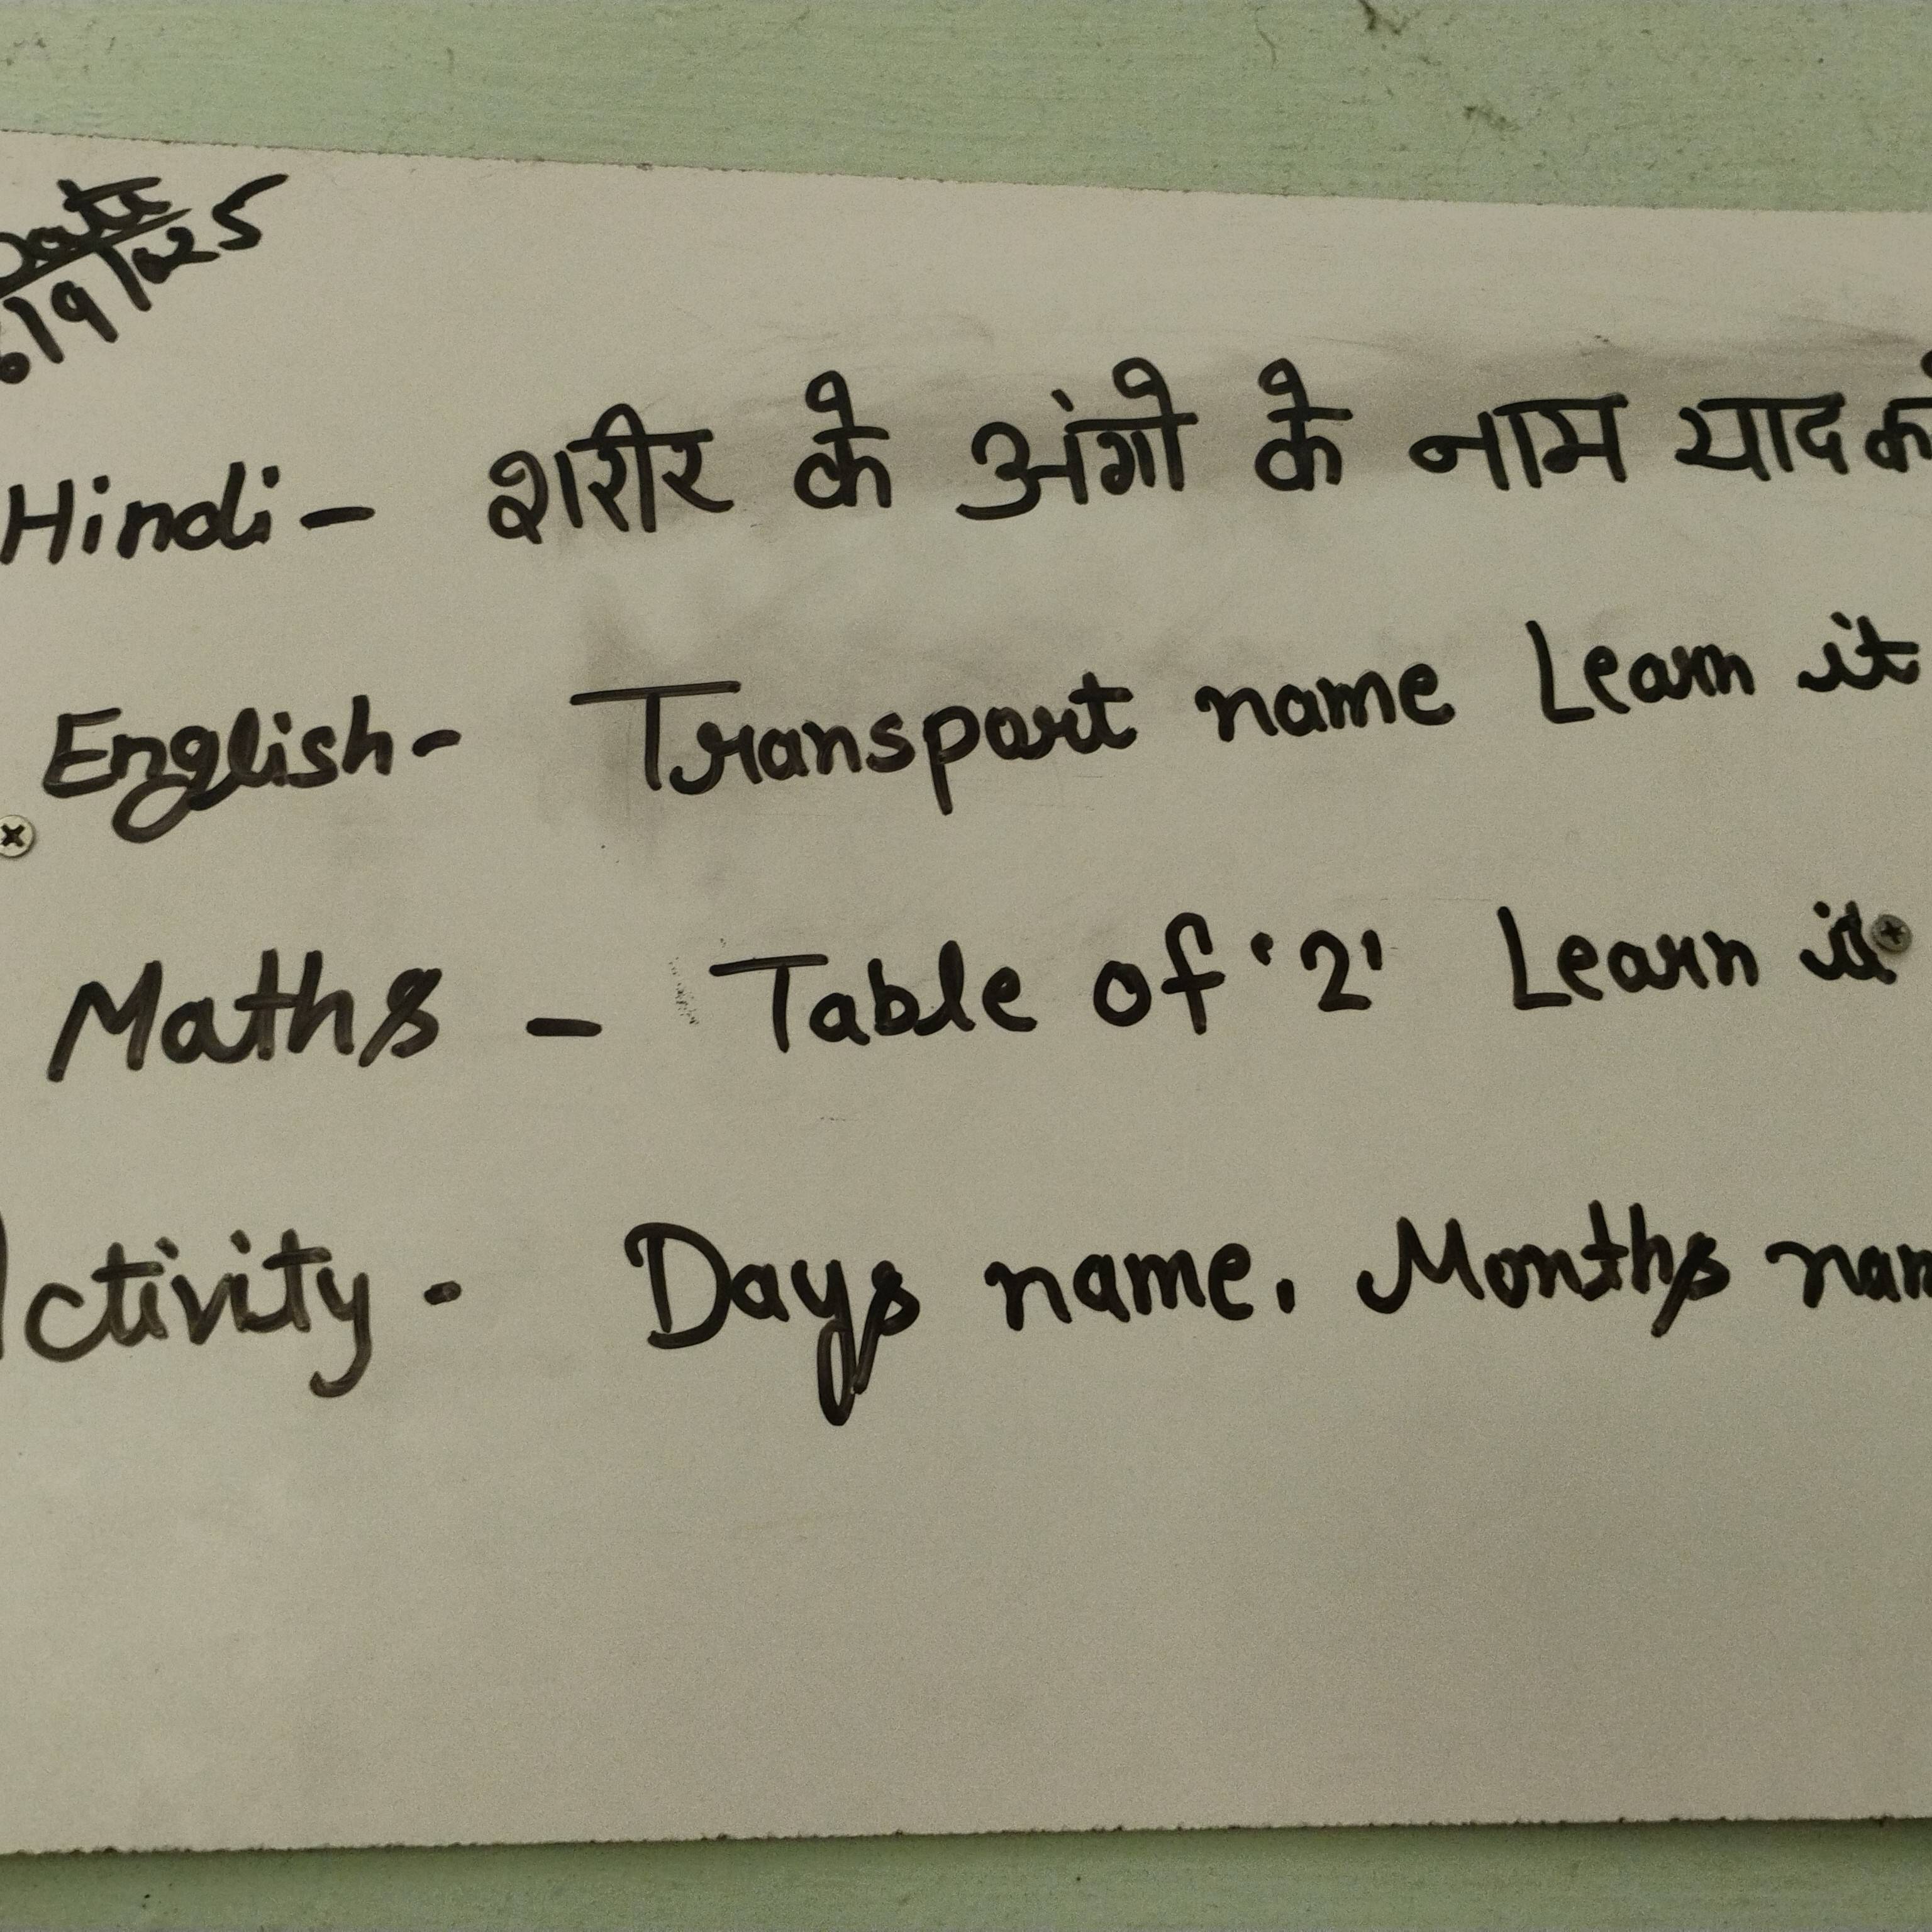 Date
6/9/025
Hindi - शरीर के अंगो के नाम याद
English - Transport name Learn it
Maths - Table of '2' Learn it
Activity - Days name, Months